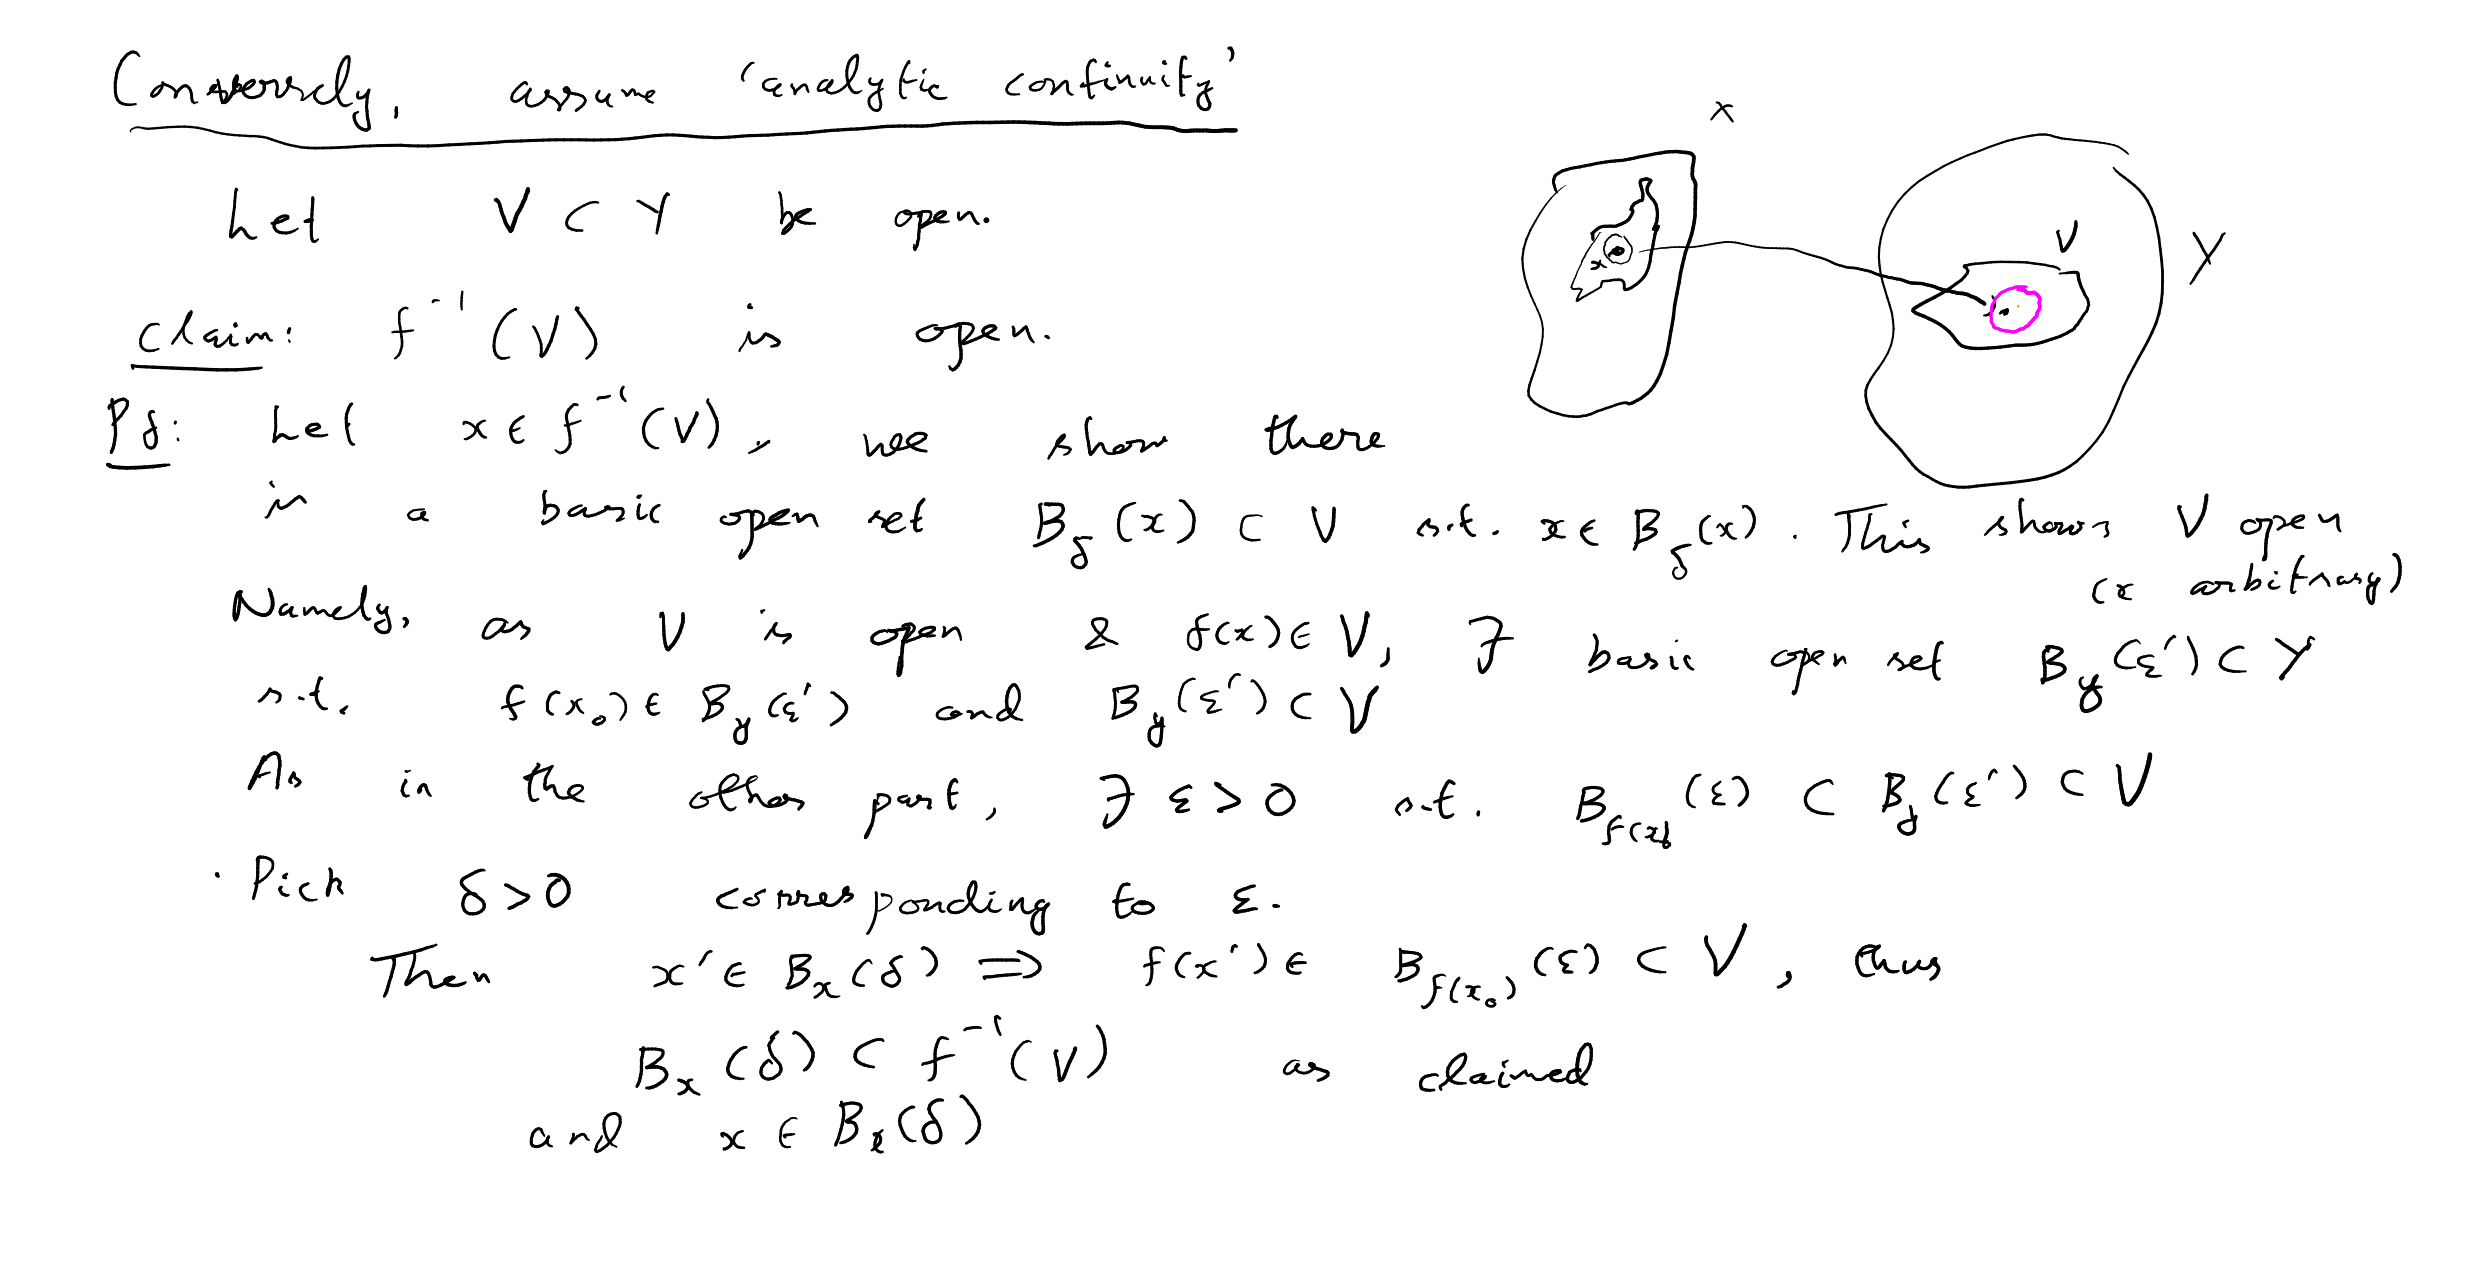 Conversely, assume 'analytic continuity'
X
Let V ⊂ Y be open.
V
Y
x
Claim: f⁻¹(V) is open.
Pf: Let x ∈ f⁻¹(V), we show there
is a basic open set B_δ(x) ⊂ V s.t. x ∈ B_δ(x). This shows V open
(x arbitrary)
Namely, as V is open & f(x) ∈ V, ∃ basic open set B_y(ε') ⊂ Y
s.t. f(x₀) ∈ B_y(ε') and B_y(ε') ⊂ V
As in the other part, ∃ ε > 0 s.t. B_f(x)(ε) ⊂ B_y(ε') ⊂ V
· Pick δ > 0 corresponding to ε.
Then x' ∈ B_x(δ) ⇒ f(x') ∈ B_f(x₀)(ε) ⊂ V, thus
B_x(δ) ⊂ f⁻¹(V) as claimed
and x ∈ B_x(δ)